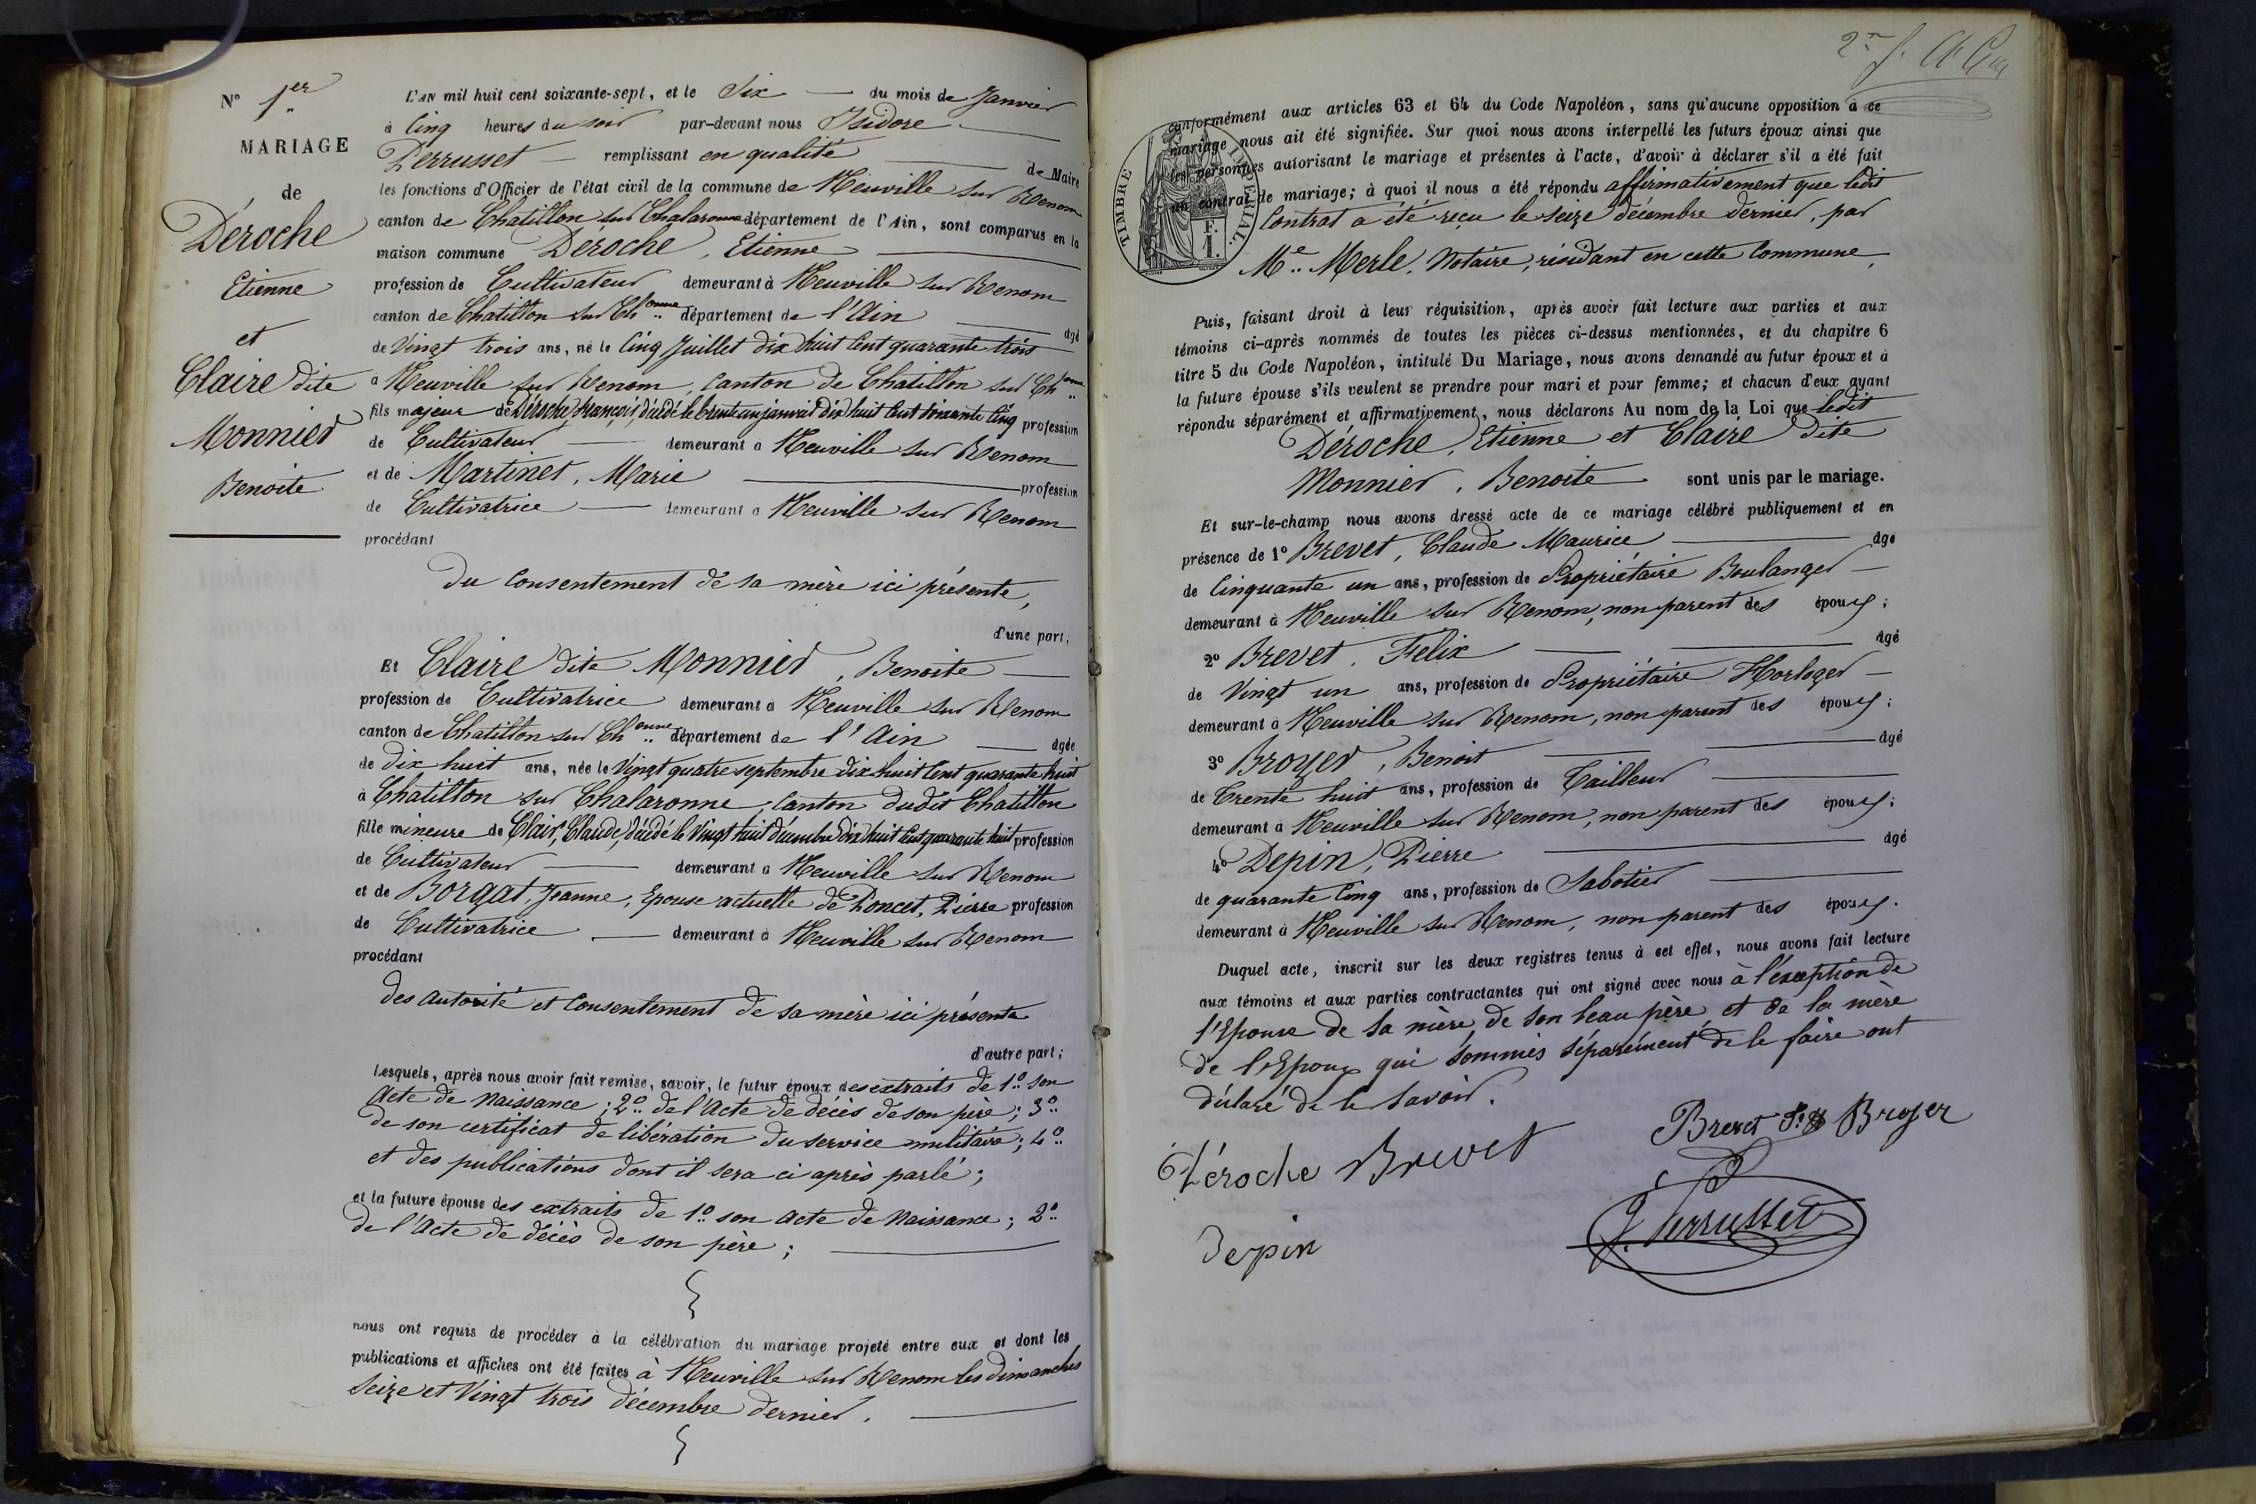 N° 1er
MARIAGE
de
Déroche
Etienne
et
Claire dite
Monnier
Benoite
L'AN mil huit cent soixante-sept, et le Six du mois de Janvier
à Cinq heures du soir par-devant nous Isidore
Perrusset remplissant en qualité de Maire
les fonctions d'Officier de l'état civil de la commune de Neuville sur Renom
canton de Chatillon sur Chalaronne département de l'Ain, sont comparus en la
maison commune Déroche, Etienne
profession de Cultivateur demeurant à Neuville sur Renom
canton de Chatillon sur Chonne département de l'Ain âgé
de Vingt trois ans, né le Cinq Juillet dix huit Cent quarante trois
à Neuville sur Renom, Canton de Chatillon sur Chonne
fils majeur de Déroche, François, décédé le trente un janvier dix huit Cent soixante Cinq profession
de Cultivateur demeurant à Neuville sur Renom
et de Martinet, Marie profession
de Cultivatrice demeurant à Neuville sur Renom
procédant
du Consentement de sa mère ici présente,
d'une part;
Et Claire dite Monnier, Benoite
profession de Cultivatrice demeurant à Neuville sur Renom
canton de Chatillon sur Chonne département de l'Ain âgée
de dix huit ans, née le Vingt quatre septembre dix huit Cent quarante huit
à Chatillon sur Chalaronne, Canton dudit Chatillon
fille mineure de Clair, Claude, décédé le Vingt huit décembre dix huit Cent quarante huit profession
de Cultivateur demeurant à Neuville sur Renom
et de Borgat, Jeanne, Epouse actuelle de Poncet, Pierre profession
de Cultivatrice demeurant à Neuville sur Renom
procédant
des autorité et Consentement de sa mère ici présente
d'autre part;
Lesquels, après nous avoir fait remise, savoir, le futur époux des extraits de 1° son
Acte de Naissance; 2° de l'Acte de décès de son père; 3°
de son certificat de libération du service militaire; 4°
et des publications dont il sera ci après parlé;
et la future épouse des extraits de 1° son Acte de Naissance; 2°
de l'Acte de décès de son père;
nous ont requis de procéder à la célébration du mariage projeté entre eux et dont les
publications et affiches ont été faites à Neuville sur Renom les dimanches
Seize et Vingt trois décembre dernier.
TIMBRE IMPÉRIAL.
F.
1.
conformément aux articles 63 et 64 du Code Napoléon, sans qu'aucune opposition à ce
mariage nous ait été signifiée. Sur quoi nous avons interpellé les futurs époux ainsi que
les personnes autorisant le mariage et présentes à l'acte, d'avoir à déclarer s'il a été fait
un contrat de mariage; à quoi il nous a été répondu affirmativement que ledit
Contrat a été reçu le seize décembre dernier, par
Me Merle, Notaire, résidant en cette Commune,
Puis, faisant droit à leur réquisition, après avoir fait lecture aux parties et aux
témoins ci-après nommés de toutes les pièces ci-dessus mentionnées, et du chapitre 6
titre 5 du Code Napoléon, intitulé Du Mariage, nous avons demandé au futur époux et à
la future épouse s'ils veulent se prendre pour mari et pour femme; et chacun d'eux ayant
répondu séparément et affirmativement, nous déclarons Au nom de la Loi que ledit
Déroche, Etienne et Claire dite
Monnier, Benoite sont unis par le mariage.
Et sur-le-champ nous avons dressé acte de ce mariage célébré publiquement et en
présence de 1° Brevet, Claude Maurice âgé
de Cinquante un ans, profession de Propriétaire Boulanger
demeurant à Neuville sur Renom, non parent des époux;
2° Brevet, Felix âgé
de Vingt un ans, profession de Propriétaire Horloger
demeurant à Neuville sur Renom, non parent des époux;
3° Broyer, Benoit âgé
de Trente huit ans, profession de Tailleur
demeurant à Neuville sur Renom, non parent des époux;
4° Depin, Pierre âgé
de quarante Cinq ans, profession de Sabotier
demeurant à Neuville sur Renom, non parent des époux.
Duquel acte, inscrit sur les deux registres tenus à cet effet, nous avons fait lecture
aux témoins et aux parties contractantes qui ont signé avec nous à l'exception de
l'Epouse de sa mère, de son beau père, et de la mère
de l'Epoux qui sommés séparément de le faire ont
déclaré ne le savoir.
Déroche Brevet Brevet Broyer
Depin J. Perrusset